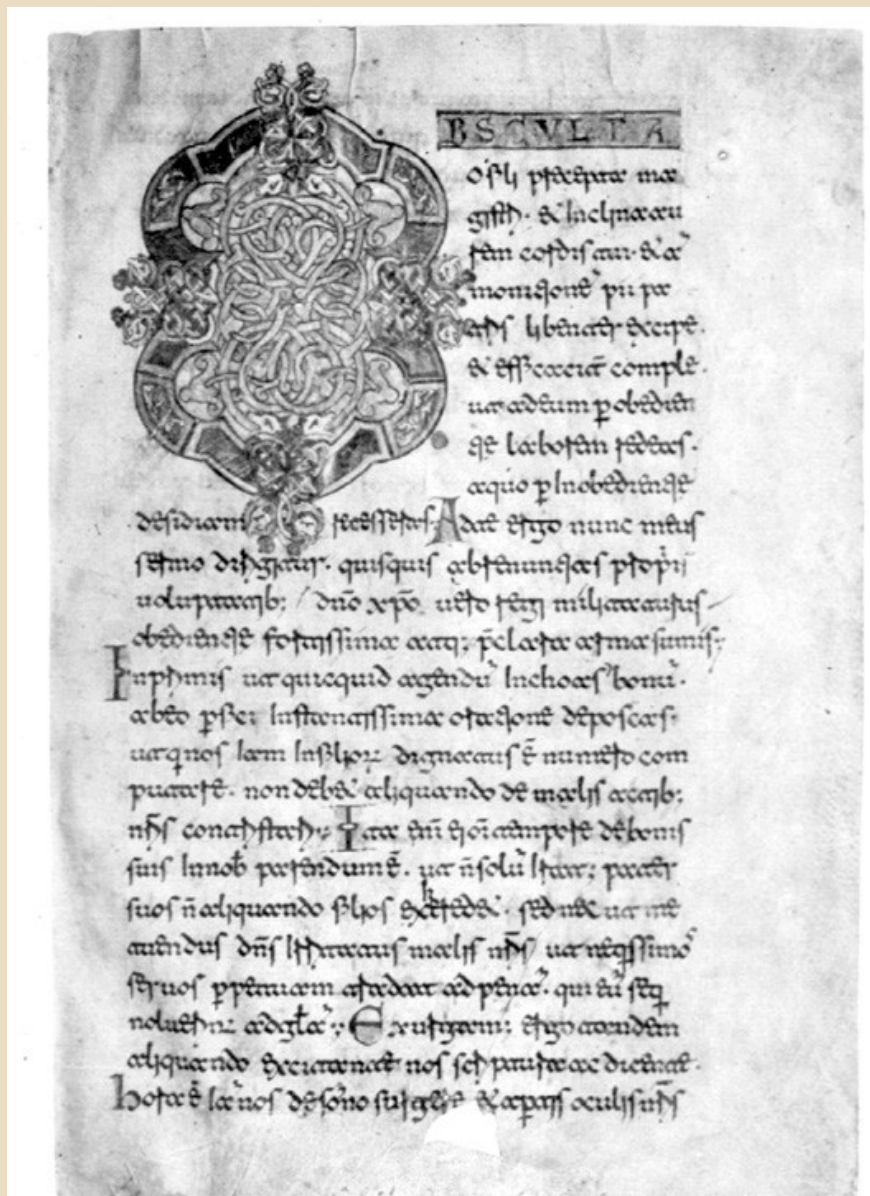 OBSCVLTA
o fili precepta ma
gistri · & inclina au
rem cordis tui · & a᷄
monitionē pii pa
tris libenter excipe ·
& efficacit̄ comple ·
ut ad eum p̄ obedien
tiē laborem redeas ·
a quo p̄ inobedientiē
desidiam recesseras · Ad te ergo nunc meus
sermo dirigitur · quisquis abrenuntias proprii
uoluptatib; dn̄o xp̄o uero regi militaturus
obedientiē fortissima atq; p̄clara arma sumis;
Inprimis ut quicquid agendū inchoas bonū ·
ab eo p̄fici instantissima orationē deposcas ·
ut q̄ nos iam in filioꝝ dignatus ē numero com
putare · non deb& aliquando de malis actib;
nr̄is contristari · Ita eni᷄ ei om̄i tempore de bonis
suis in nob̄ parendum ē · ut n̄ solū irat; pater
suos n̄ aliquando filios exhered& · sed nec ut me
tuendus dn̄s irritatus malis nr̄is ut neq̄ssimos
seruos p̄petuam tradat ad penā · qui eū seq̄
noluerint ad gl̄ā · Exurgam; ergo tandem
aliquando excitante nos scriptura ac dicente ·
hora ē iā nos de sōno surgere & ap̄tis oculis nr̄is